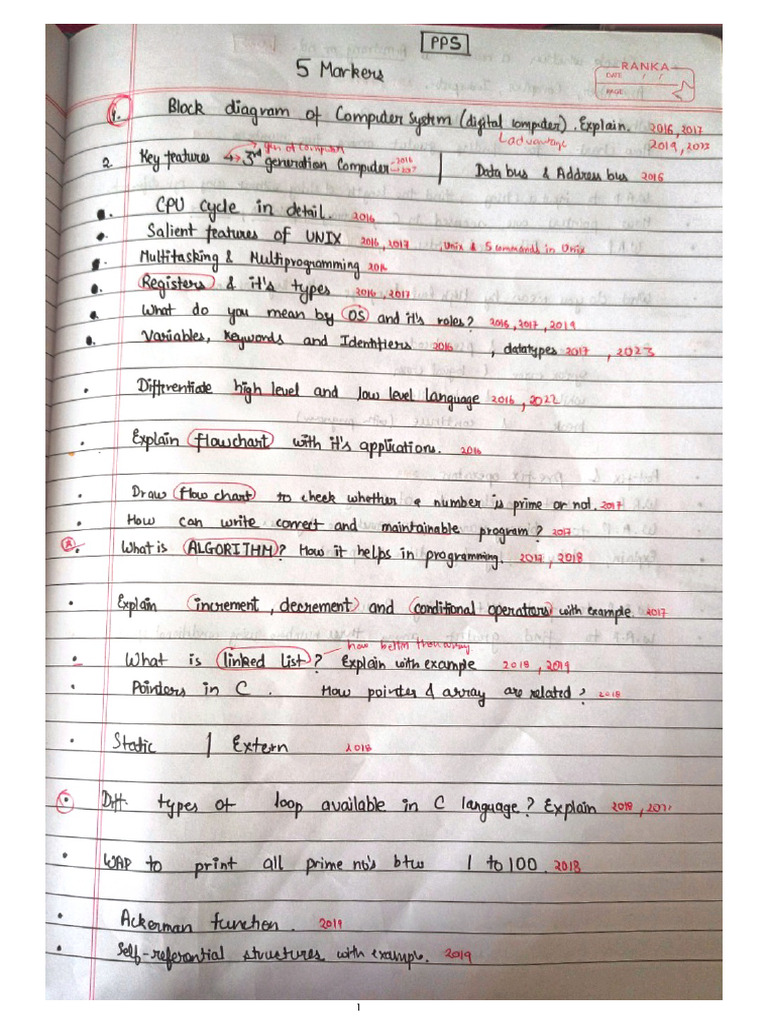 PPS
5 Markers
RANKA
DATE / /
PAGE
1. Block diagram of Computer System (digital computer). Explain. 2016, 2017
2019, 2023
Ladvantage
gen of computer
2. Key features → 3rd generation Computer 2016 2017 | Data bus & Address bus 2016
• CPU cycle in detail. 2016
• Salient features of UNIX 2016, 2017, Unix & 5 commands in Unix
• Multitasking & Multiprogramming 2016
• Registers & it's types 2016, 2017
• What do you mean by OS and it's roles? 2016, 2017, 2019
• Variables, Keywords and Identifiers 2016, datatypes 2017, 2023
• Differentiate high level and low level language 2016, 2022
• Explain flowchart with it's applications. 2016
• Draw flow chart to check whether a number is prime or not. 2017
• How can write correct and maintainable program? 2017
• What is ALGORITHM? How it helps in programming. 2017, 2018
• Explain increment, decrement and conditional operations with example. 2017
how better than array.
• What is linked list? Explain with example 2018, 2019
• Pointers in C. How pointer & array are related? 2018
• Static | Extern 2018
• Diff. types of loop available in C language? Explain 2018, 2022
• WAP to print all prime no's btw 1 to 100. 2018
• Ackerman function. 2019
• Self-referential structures with example. 2019
1